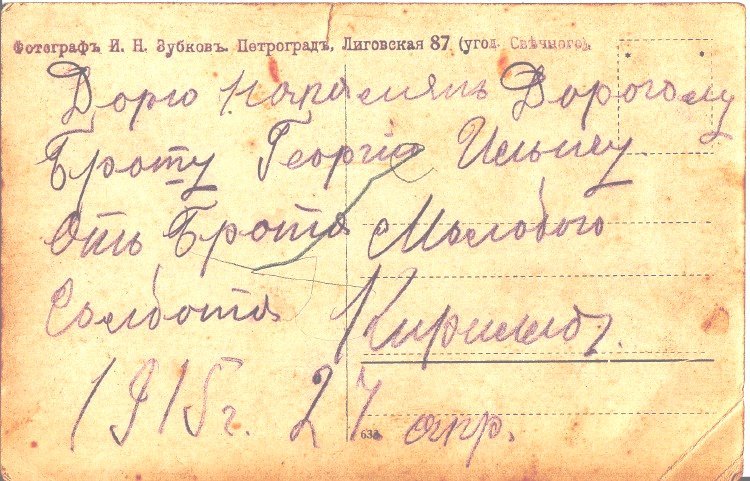 Фотографъ И. Н. Зубковъ. Петроградъ, Лиговская 87 (угол. Свѣчного).
Дорю Дорогому
Броту Георгію Ильичу
Отъ Брота
Солдота Кирилло
1915г. 27 апр.